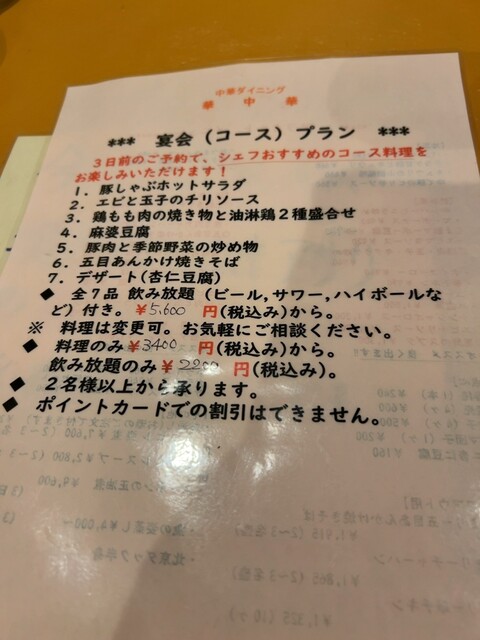 中華ダイニング
華中華
*** 宴会(コース)プラン ***
3日前のご予約で、シェフおすすめのコース料理を
お楽しみいただけます!
1. 豚しゃぶホットサラダ
2. エビと玉子のチリソース
3. 鶏もも肉の焼き物と油淋鶏2種盛合せ
4. 麻婆豆腐
5. 豚肉と季節野菜の炒め物
6. 五目あんかけ焼きそば
7. デザート(杏仁豆腐)
◆ 全7品 飲み放題(ビール,サワー,ハイボールな
ど)付き。¥5,600 円(税込み)から。
※ 料理は変更可。お気軽にご相談ください。
◆ 料理のみ¥3400 円(税込み)から。
飲み放題のみ¥2200円(税込み)。
◆ 2名様以上から承ります。
◆ ポイントカードでの割引はできません。